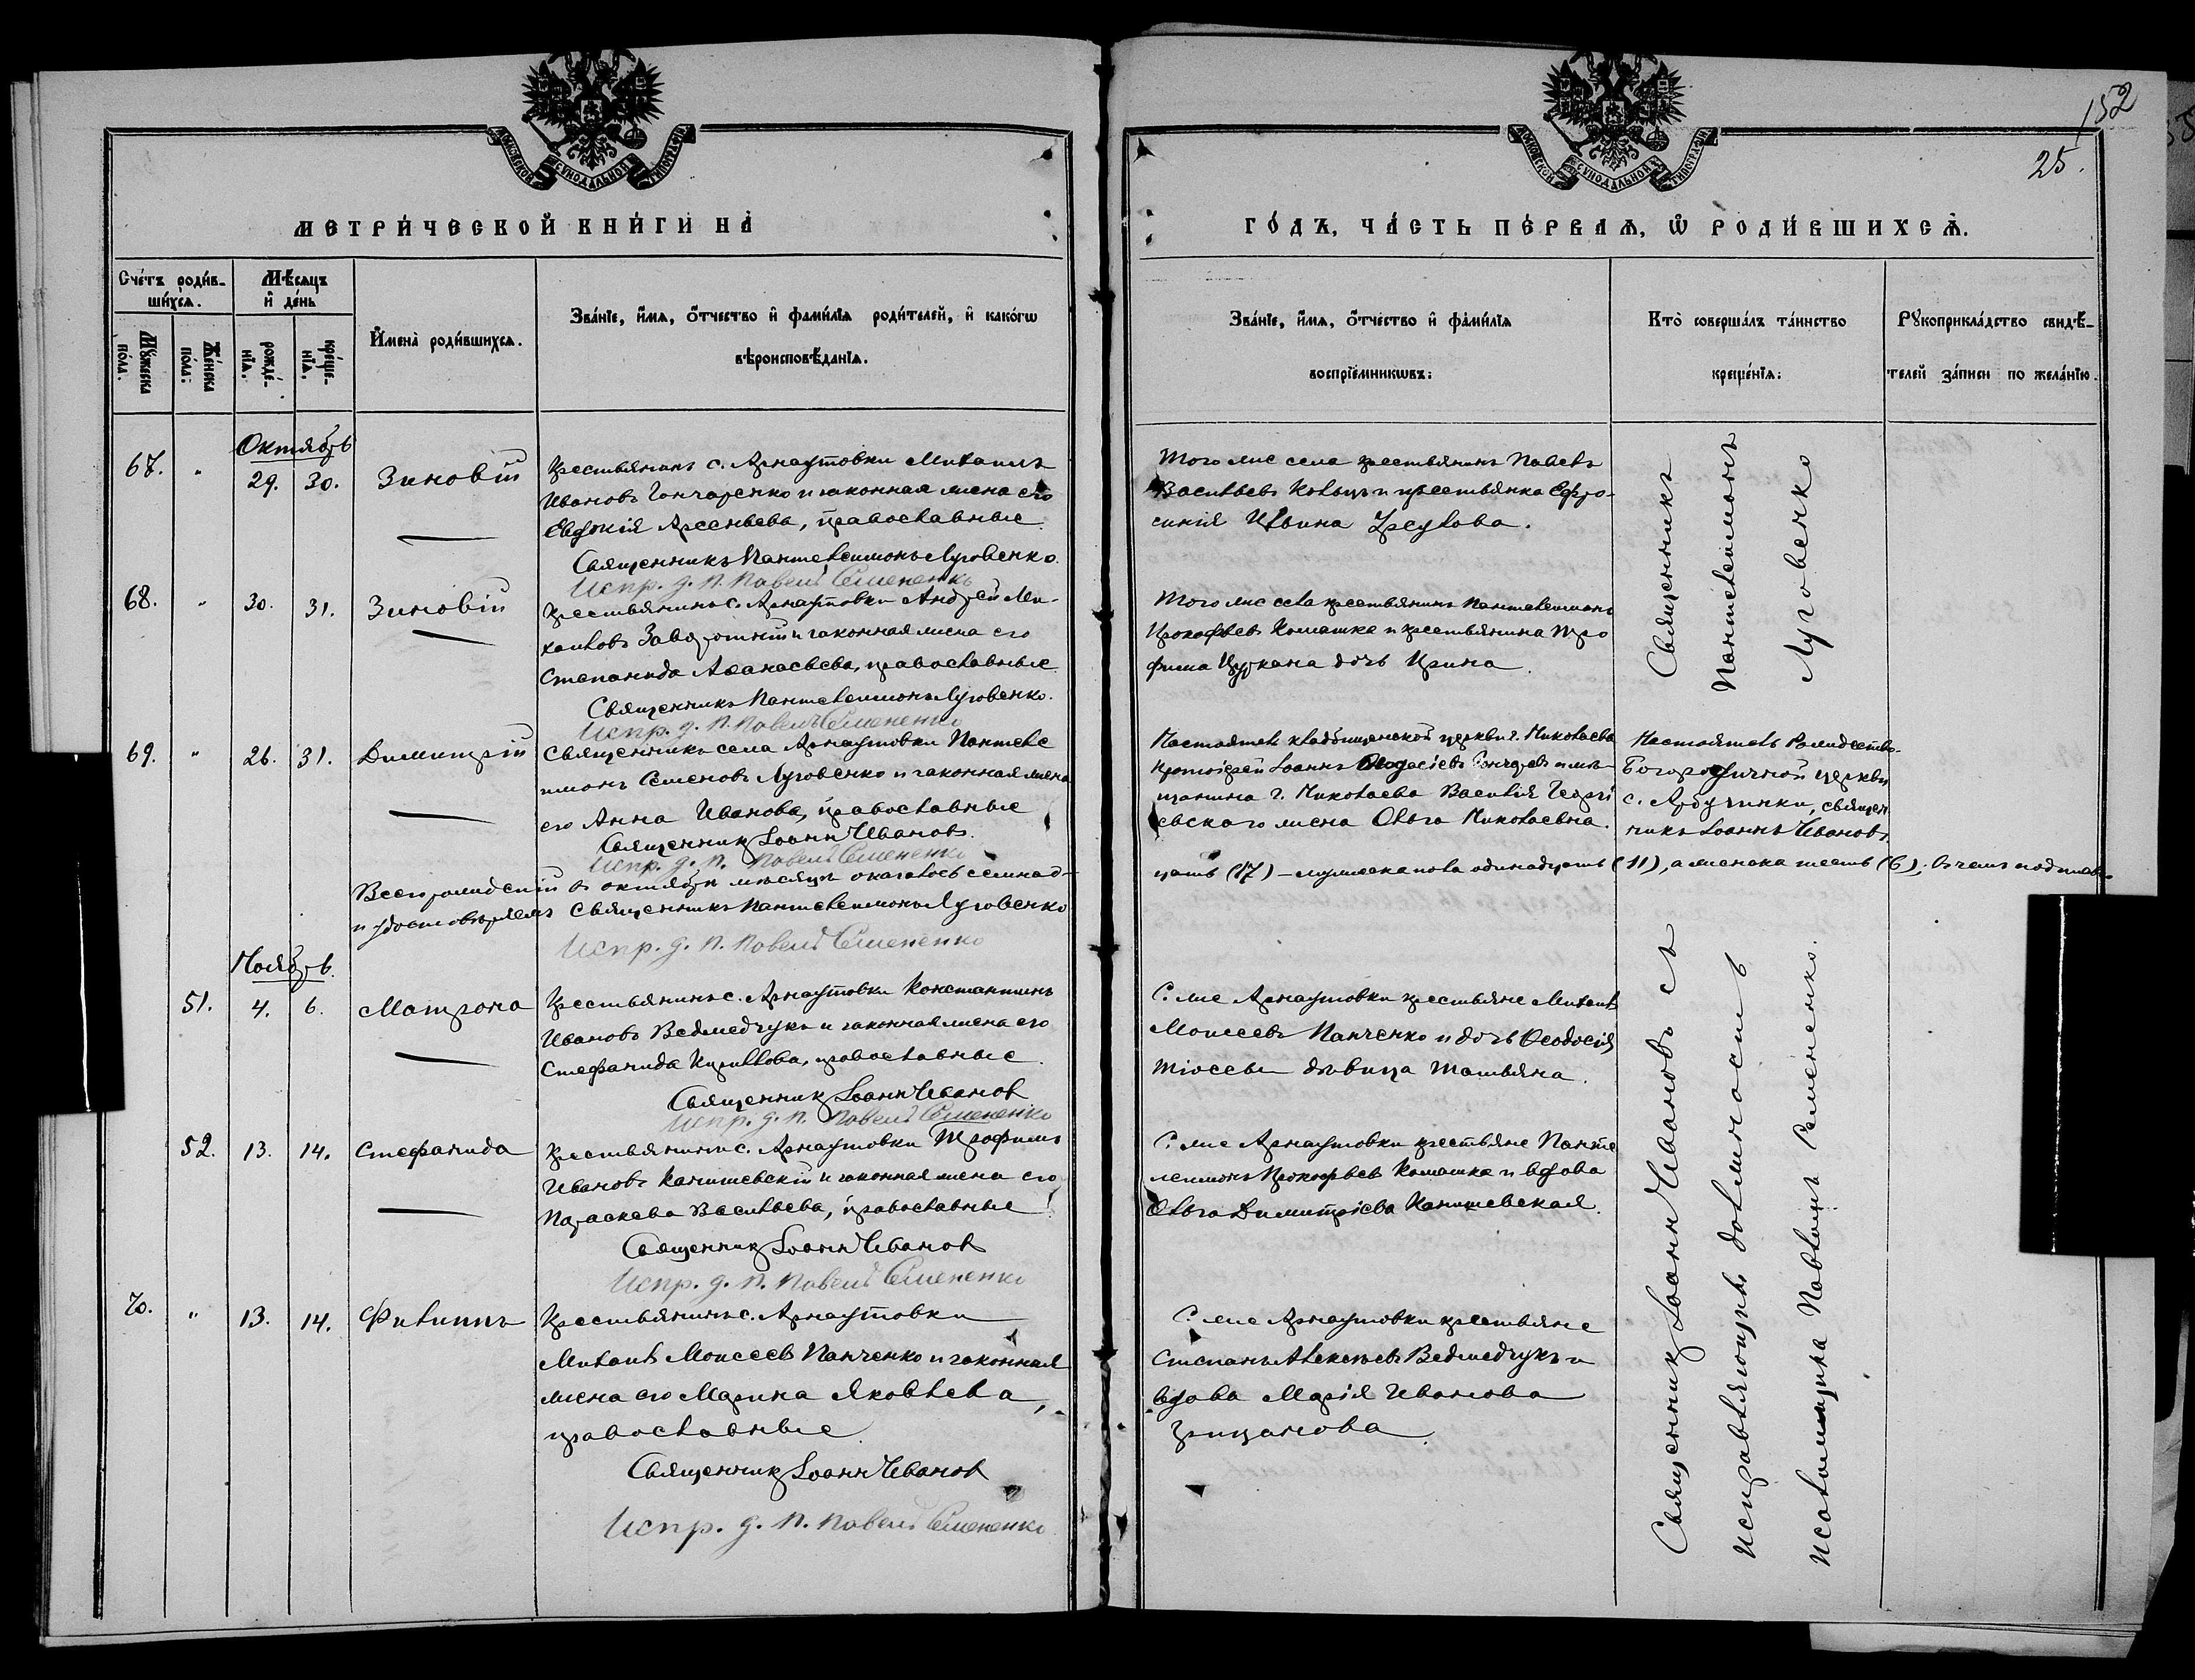 152
25.
МОСКОВСКОЙ СѴНОДАЛЬНОЙ ТИПОГРАФІИ
МОСКОВСКОЙ СѴНОДАЛЬНОЙ ТИПОГРАФІИ
МЕТРИ́ЧЕСКОЙ КНИ́ГИ НА̀
ГО́ДЪ, ЧА́СТЬ ПЕ́РВАѦ, Ѡ РОДИ́ВШИХСѦ.
Сче́тъ роди́в-
ши́хсѧ.
Му́жеска по́ла.
Же́нска по́ла.
Мѣ́сѧцъ
и де́нь
рожде́-нїѧ.
креще́-нїѧ.
Имена̀ роди́вшихсѧ.
Зва́нїе, и́мѧ, о́тчество и фами́лїѧ роди́телей, и како́гѡ
вѣроисповѣ́данїѧ.
Зва́нїе, и́мѧ, о́тчество и фами́лїѧ
воспрїе́мникѡвъ:
Кто̀ соверша́лъ та́инство
креще́нїѧ:
Рꙋкоприкла́дство свидѣ́-
телей за́писи по жела́нїю.
Октябрь
67. " 29. 30. Зиновій
Крестьянинъ с. Арнаутовки Михаилъ
Ивановъ Гончаренко и законная жена его
Евдокія Арсеньева, православные.
Священникъ Пантелеимонъ Луговенко.
Испр. д. п. Павелъ Семененко
Того же села крестьянинъ Павелъ
Васильевъ Колецъ и крестьянка Ефро-
синія
Священникъ
Пантелеимонъ
Луговенко
68. " 30. 31. Зиновій
Крестьянинъ с. Арнаутовки Андрей Ми-
хаиловъ Заворотній и законная жена его
Степанида Аѳанасьева, православные.
Священникъ Пантелеимонъ Луговенко.
Испр. д. п. Павелъ Семененко
Того же села крестьянинъ Пантелеимонъ
Прокофьевъ Комашка и крестьянина Тро
фима Цуркана дочь Ирина.
69. " 26. 31. Димитрій
Священникъ села Арнаутовки Пантеле
имонъ Семеновъ Луговенко и законная жена
его Анна Иванова, православные
Священникъ Іоаннъ Ивановъ.
Испр. д. п. Павелъ Семененко
Настоятель кладбищенской церкви г. Николаева
Протоіерей Іоаннъ Ѳеодосіевъ и мѣ-
щанина г. Николаева Василія Георгі
евскаго жена Ольга Николаевна.
Настоятель Рождество-
Богородичной церкви
с. Арбузинки, священ
никъ Іоаннъ Ивановъ.
Всего рожденій въ октябрѣ мѣсяцѣ оказалось семнад-
цать (17) – мужеска пола одинадцать (11), а женска шесть (6), въ чемъ подпис.
и удостовѣряемъ Священникъ Пантелеимонъ Луговенко
Испр. д. п. Павелъ Семененко
Ноябрь.
51. 4. 6. Матрона
Крестьянинъ с. Арнаутовки Константинъ
Ивановъ Ведмедчукъ и законная жена его
Стефанида Кириллова, православные.
Священникъ Іоаннъ Ивановъ
Испр. д. п. Павелъ Семененко
С. же Арнаутовки крестьяне Михаилъ
Моисеевъ Панченко и дочь Ѳеодосія
дѣвица Татьяна.
Священникъ Іоаннъ Ивановъ съ
исправляющимъ должность
псаломщика Павломъ Семененко.
52. 13. 14. Стефанида
Крестьянинъ с. Арнаутовки Трофимъ
Ивановъ Канишевскій и законная жена его
Параскева Васильева, православные.
Священникъ Іоаннъ Ивановъ
Испр. д. п. Павелъ Семененко
С. же Арнаутовки крестьяне Панте
леимонъ Прокофьевъ Комашка и вдова
Ольга Димитріева Канишевская.
70. " 13. 14. Филиппъ
Крестьянинъ с. Арнаутовки
Михаилъ Моисеевъ Панченко и законная
жена его Марина Яковлева,
православные.
Священникъ Іоаннъ Ивановъ
Испр. д. п. Павелъ Семененко
С. же Арнаутовки крестьяне
Степанъ Алексѣевъ Ведмедчукъ и
вдова Марія Иванова
Грицанова.